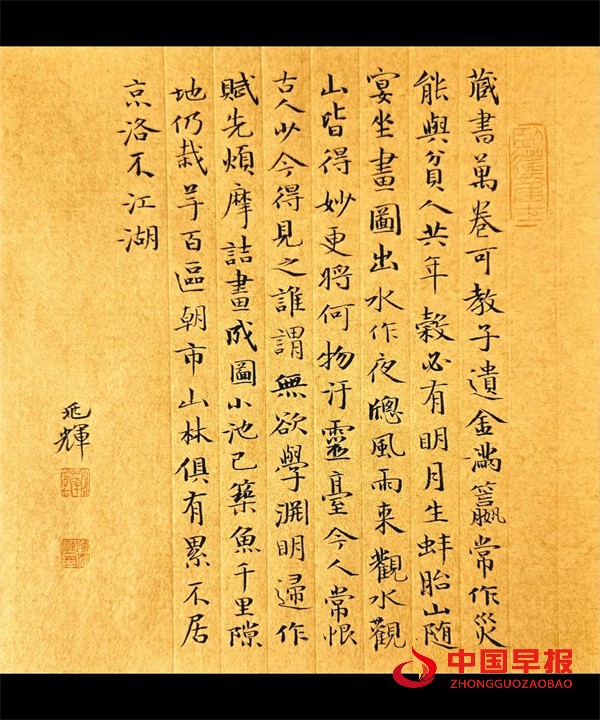 藏書萬卷可教子遺金滿籝常作災
能與貧人共年穀必有明月生蚌胎山隨
宴坐畫圖出水作夜窻風雨來觀水觀
山皆得妙更將何物汙靈臺今人常恨
古人少今得見之誰謂無欲學淵明歸作
賦先煩摩詰畫成圖小池已築魚千里隙
地仍栽芋百區朝市山林俱有累不居
京洛不江湖
兆輝
中国早报
ZHONGGUOZAOBAO